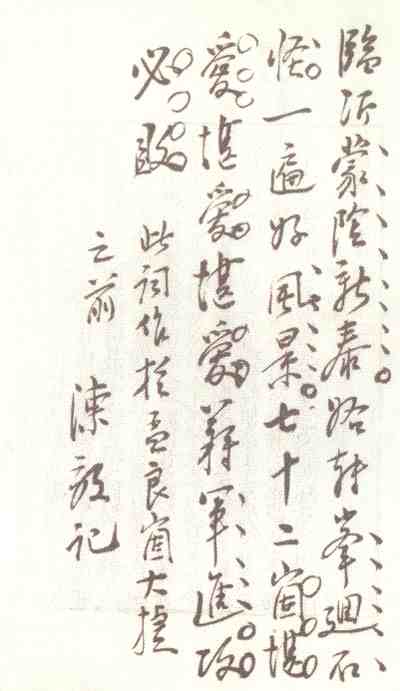 臨沂蒙陰新泰。路轉峯迴石
怪。一遍好風景。七十二崮堪
愛。堪愛。堪愛。蔣軍進攻
必敗。
此詞作於孟良崮大捷
之前 陳毅記